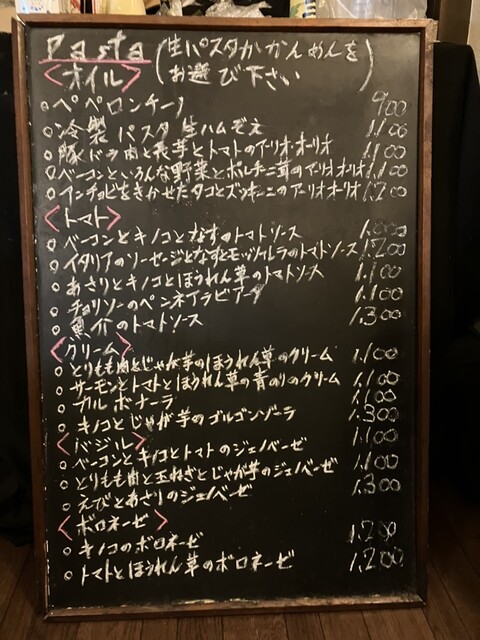 Pasta (生パスタかかんめんを
お選び下さい)
<オイル>
○ペペロンチーノ 900
○冷製パスタ 生ハムぞえ 1.100
○豚バラ肉と長芋とトマトのアーリオ・オーリオ 1.100
○ベーコンといろんな野菜とポルチーニ茸のアーリオオーリオ 1.100
○アンチョビをきかせたタコとズッキーニのアーリオオーリオ 1.200
<トマト>
○ベーコンとキノコとなすのトマトソース 1.000
○イタリアのソーセージとなすとモッツァレラのトマトソース 1.200
○あさりとキノコとほうれん草のトマトソース 1.100
○チョリソーのペンネアラビアータ 1.100
○魚介のトマトソース 1.300
<クリーム>
○とりもも肉とじゃが芋のほうれん草のクリーム 1.100
○サーモンとトマトとほうれん草の青のりのクリーム 1.100
○カルボナーラ 1.100
○キノコとじゃが芋のゴルゴンゾーラ 1.300
<バジル>
○ベーコンとキノコとトマトのジェノベーゼ 1.100
○とりもも肉と玉ねぎとじゃが芋のジェノベーゼ 1.100
○えびとあさりのジェノベーゼ 1.300
<ボロネーゼ>
○キノコのボロネーゼ 1.200
○トマトとほうれん草のボロネーゼ 1.200